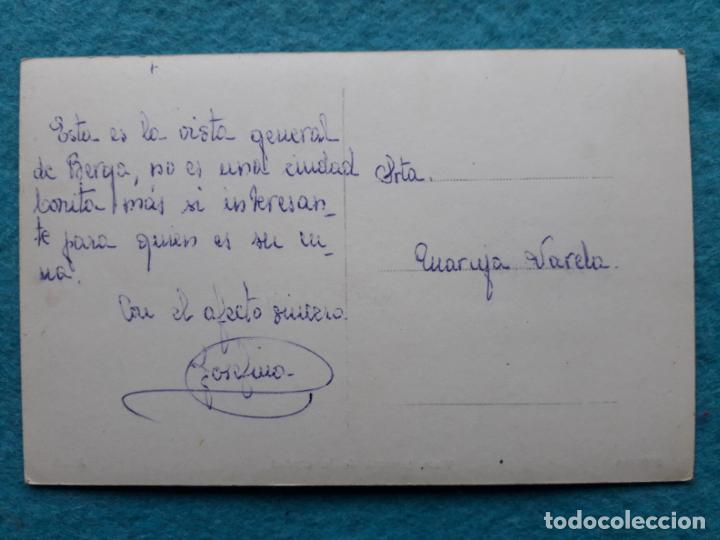 Esta es la vista general
de Berga, no es una ciudad
bonita más si interesan_
te para quien es su cu_
na.
Con el afecto sincero.
Josefina.
Srta.
Maruja Varela.
todocoleccion